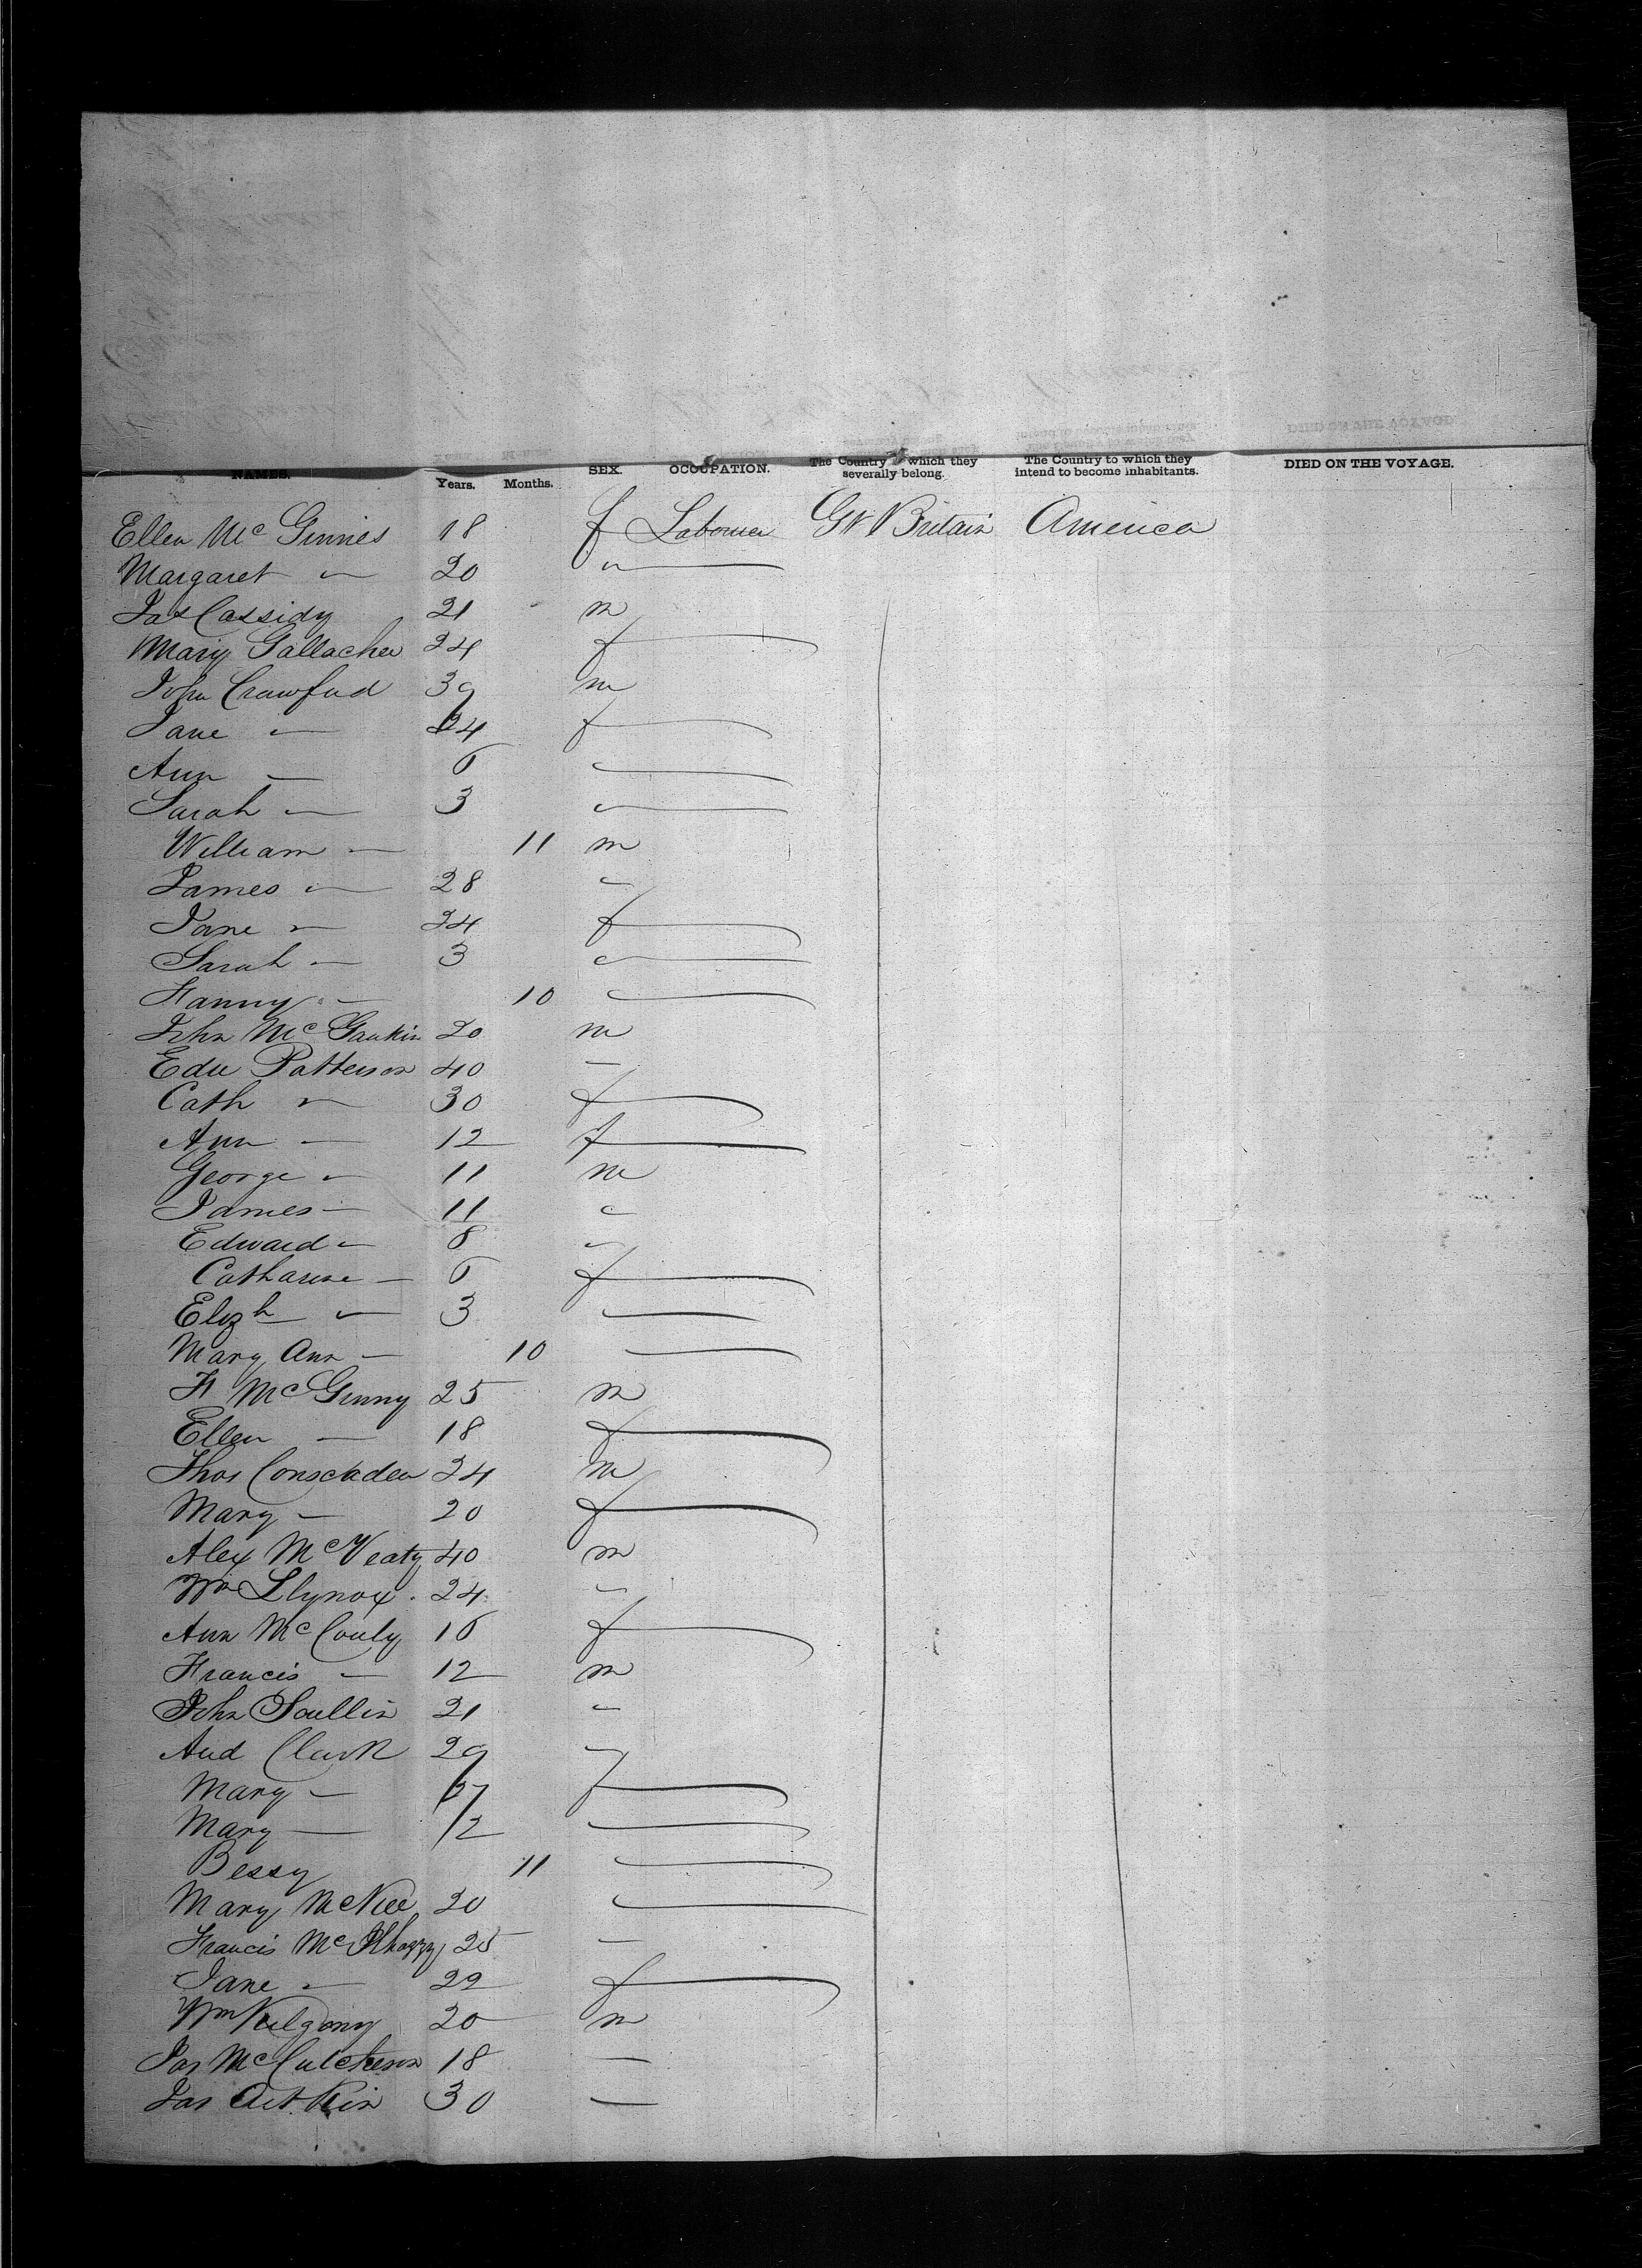 NAMES. Years. Months. SEX. OCCUPATION. The Country which they severally belong. The Country to which they intend to become inhabitants. DIED ON THE VOYAGE.
Ellen Mc Ginnes 18 f Labourer Gt Britain America
Margaret " 20 "
Jas Cassidy 21 m
Mary Gallacher 24 f
John Crawfud 39 m
Jane " 24 f
Ann — 6 "
Sarah — 3 "
William — 11 m
James " 28 "
Jane " 24 f
Sarah — 3 "
Fanny — 10 "
John Mc Gaukin 20 m
Edw Patterson 40 —
Cath " 30 f
Ann — 12 f
George " 11 m
James — 11 "
Edward " 8 "
Catharine — 6 f
Elizh " 3 "
Mary Ann — 10 "
Mc Ginny 25 m
Ellen — 18 f
Thos 24 m
Mary — 20 f
Alex Mc Veaty 40 m
Wm Llynox . 24 "
Ann Mc Couly 16 f
Francis — 12 m
John Scullin 21 "
And Clark 29 "
Mary — 27 f
Mary — 12 "
Bessy 11 "
Mary McNiel 20 "
Francis Mc 25 —
Jane " 22 f
Wm Kilgony 20 m
Jas McCutcheson 18 —
Jas Aitkin 30 —